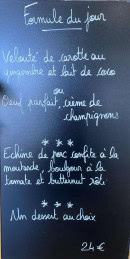 Formule du jour
Velouté de carotte au
gingembre et lait de coco
ou
Oeuf parfait, crème de
champignons
***
Echine de porc confite à la
moutarde, boulgour à la
tomate et butternut rôti
***
Un dessert au choix
24 €